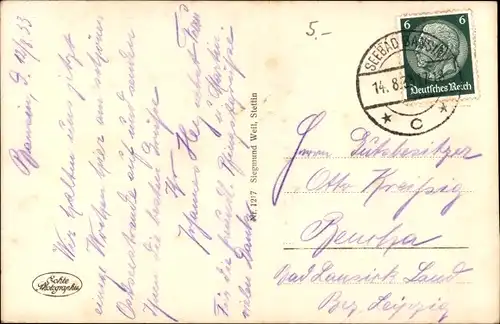 Bansin, d. 12/8.33
Wir halten uns jetzt
einige Wochen hier am schönen
Ostseestrande auf und senden
Ihnen die besten Grüße
Ihr
Johannes
u. Martin.
Für die freundl. Pfingstgrüße
vielen Dank
Echte
Photographie
Nr. 1217 Siegmund Weil, Stettin
5,-
6 6
Deutsches Reich
SEEBAD BANSIN
14.8.
C
Herrn Gutsbesitzer
Otto Kreißig
Benndorf
Bad Lausick Land
Bez. Leipzig